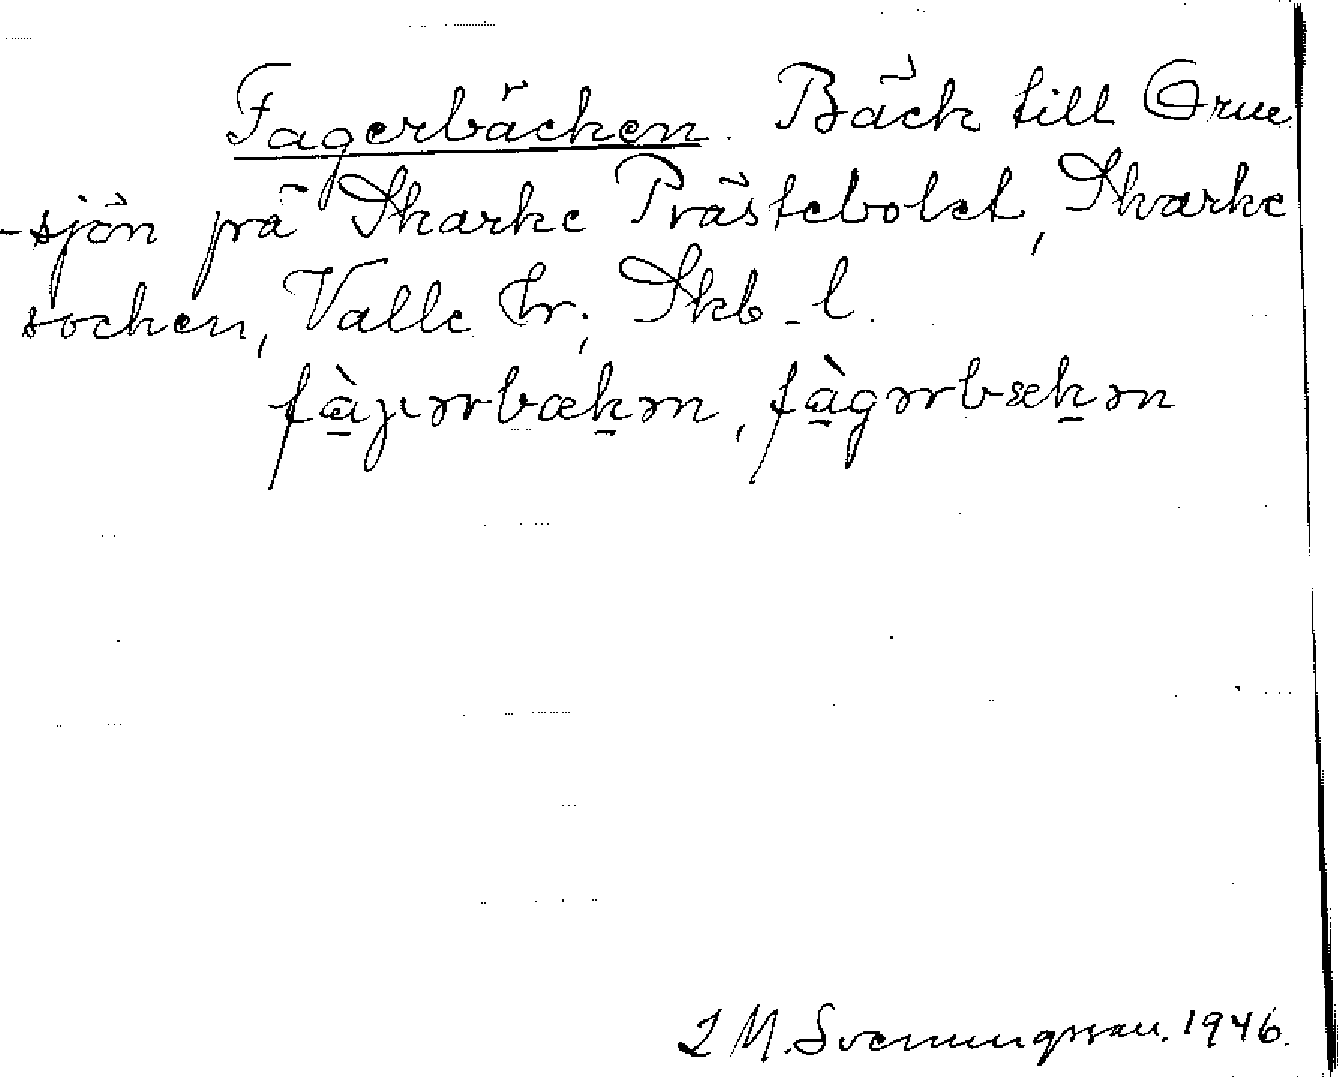 Fagerbäcken. Bäck till Orne
-sjön på Skarke Prästebolet, Skarke
socken, Valle hr, Skb. l.
fàgərbækən, fàgərbækən
L M. Svenungsson. 1946.